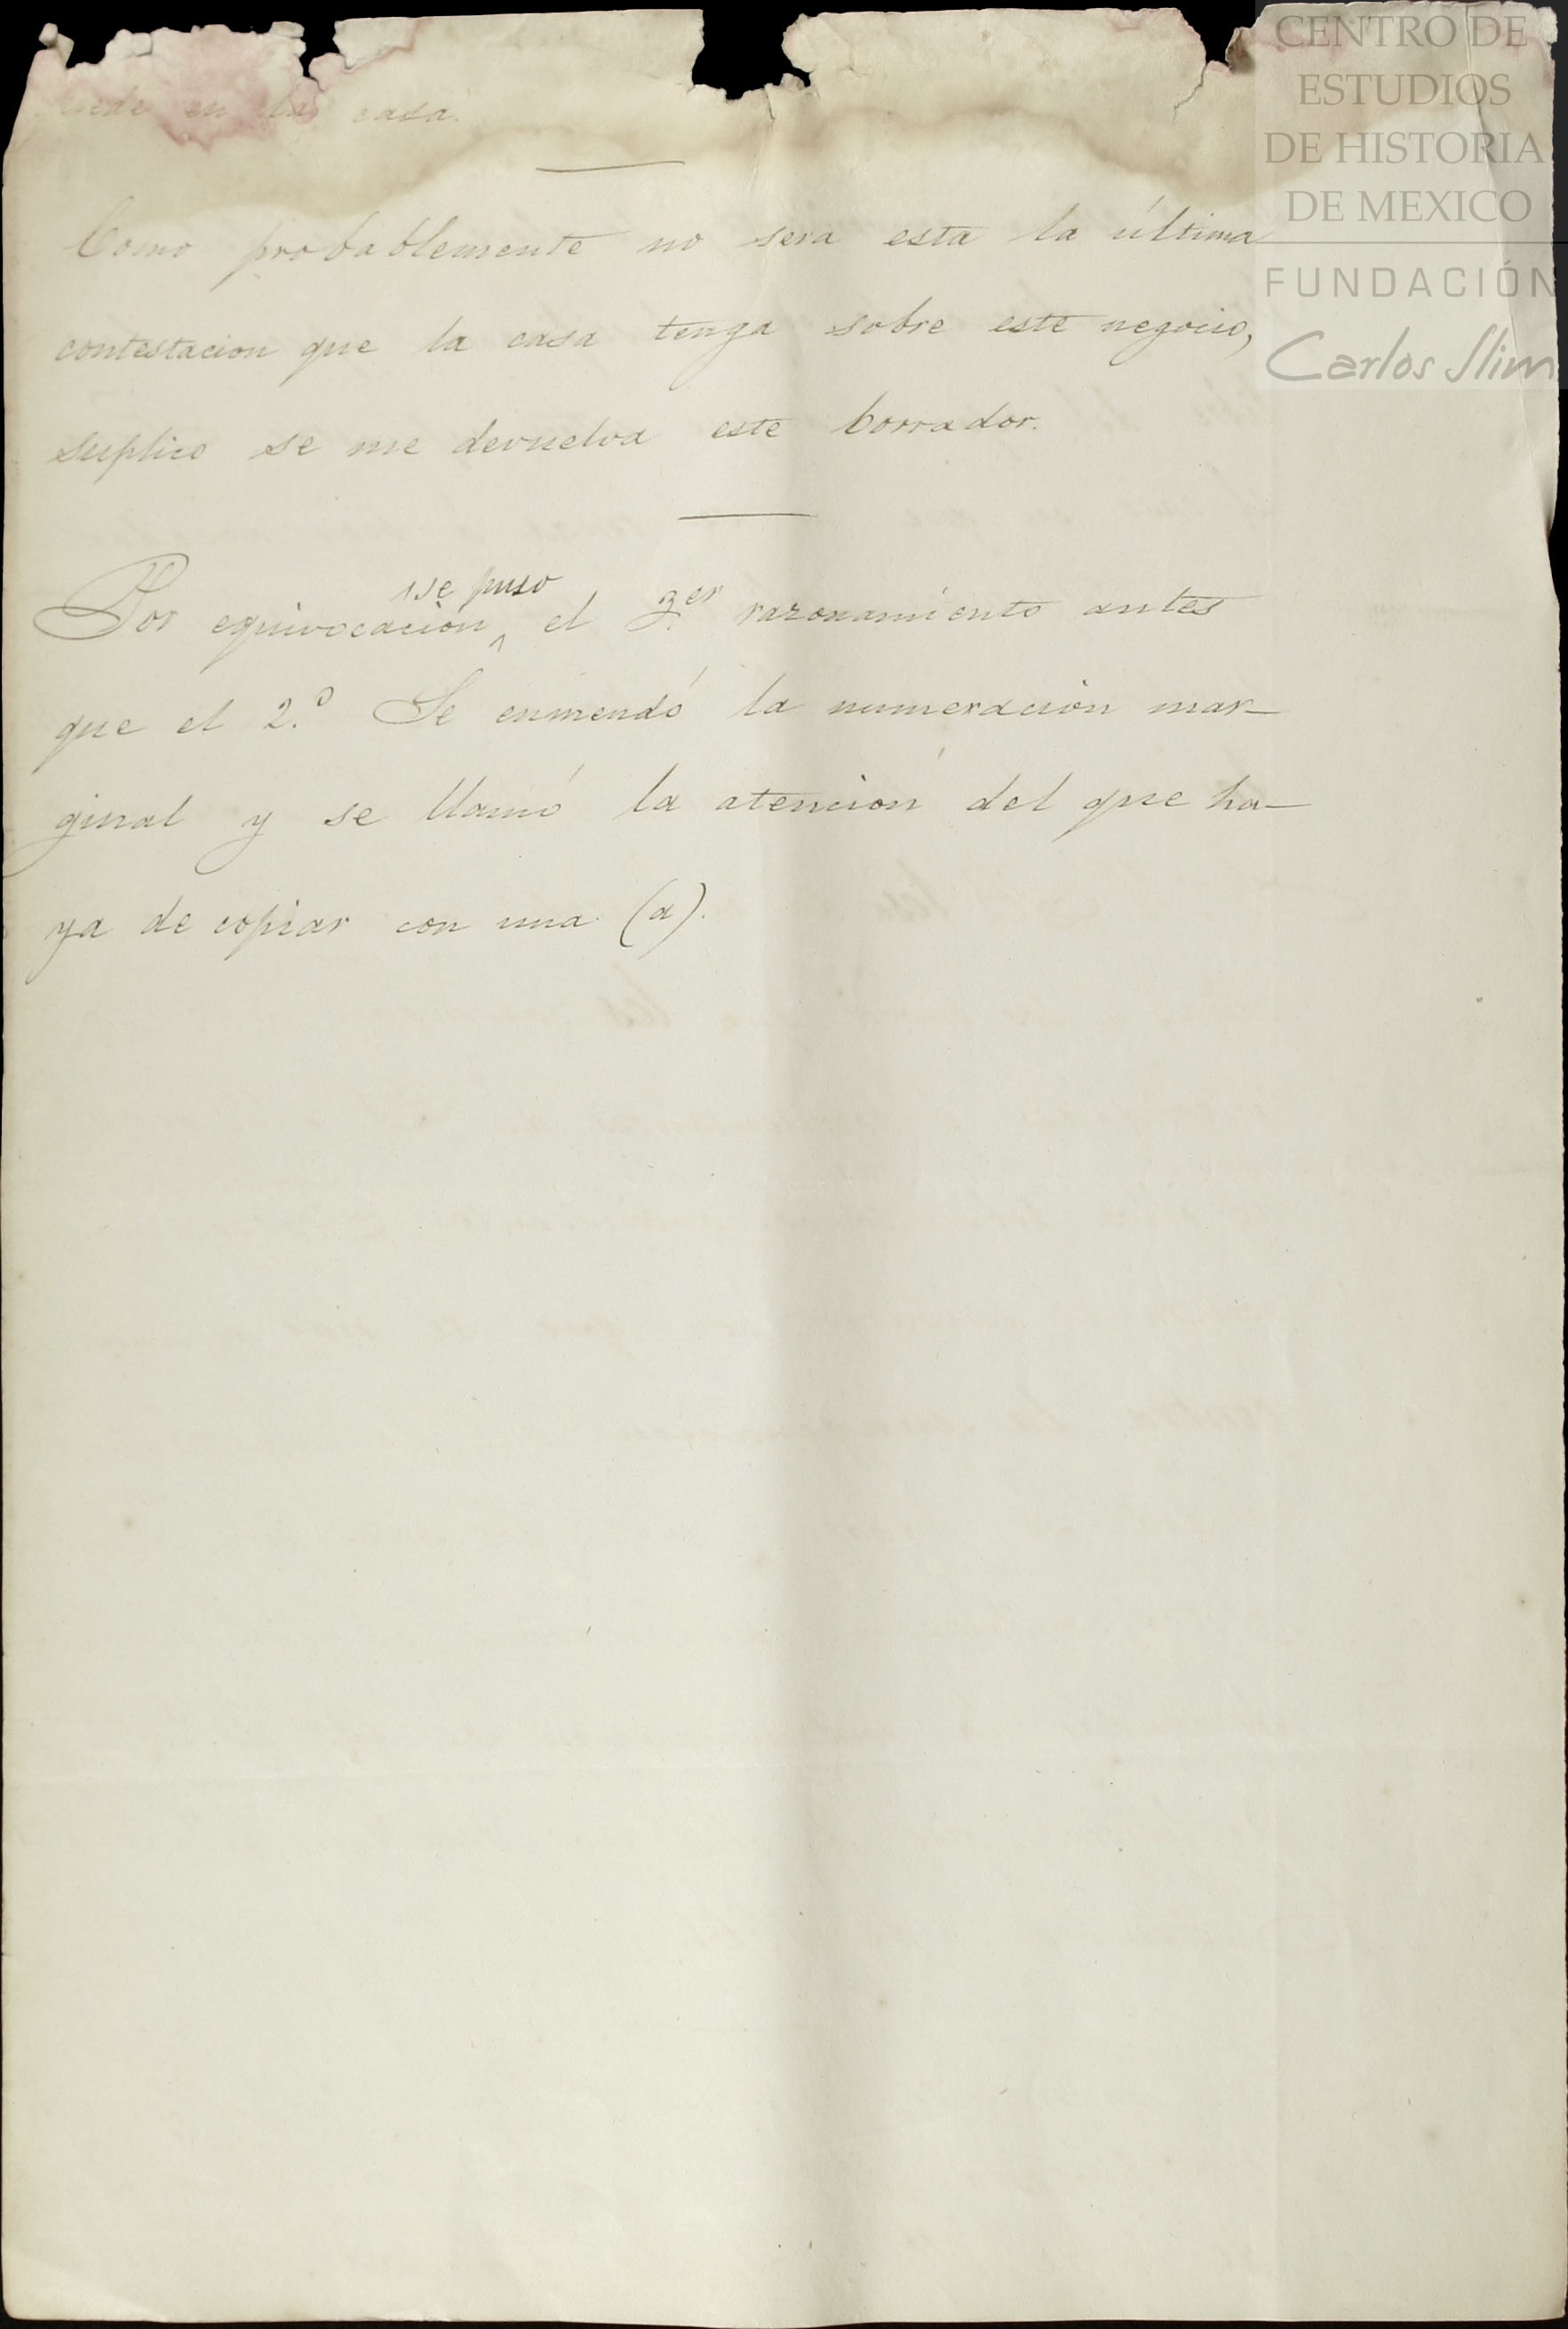 en la casa.
Como probablemente no sera esta la última
contestacion que la casa tenga sobre este negocio,
suplico se me devuelva este borrador.
se puso
Por equivocacion ^ el 3.er razonamiento antes
que el 2.º Se enmendó la numeracion mar-
ginal y se llamó la atención del que ha-
ya de copiar con una (a).
CENTRO DE
ESTUDIOS
DE HISTORIA
DE MEXICO
FUNDACIÓN
Carlos Slim